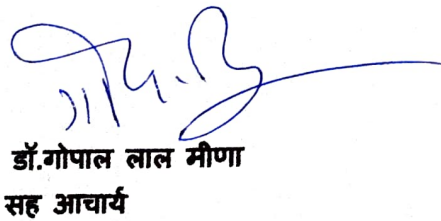 डॉ.गोपाल लाल मीणा
सह आचार्य